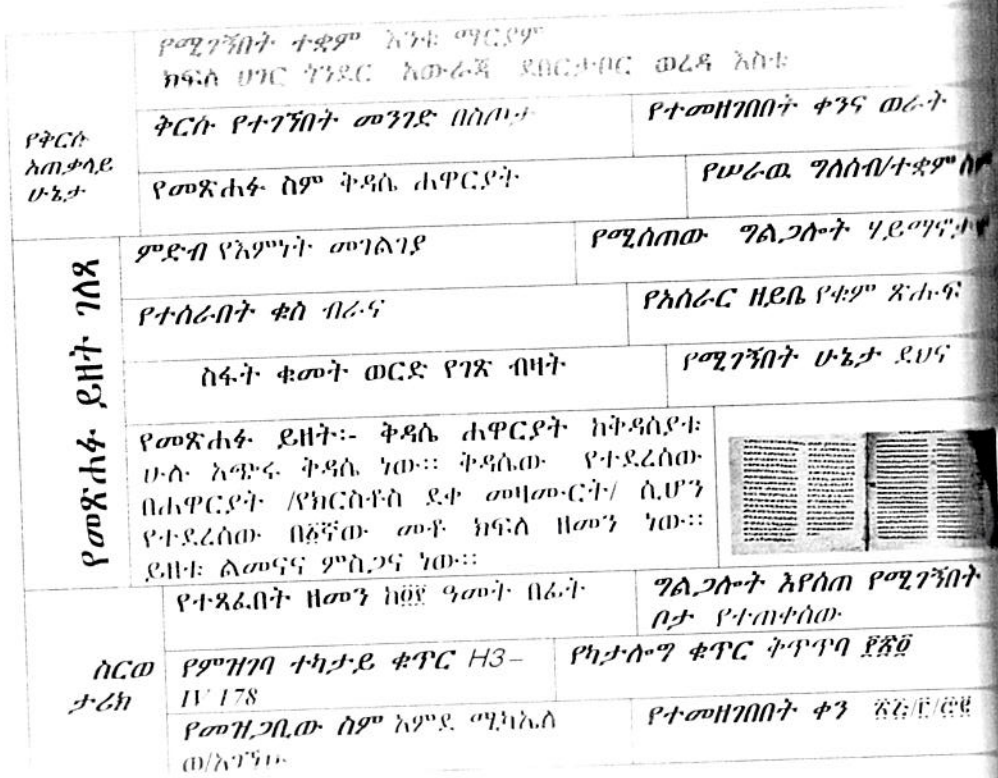 የሚገኝበት ተቋም እንቱ ማርያም
ክፍለ ሀገር ጎንደር አውራጃ ደበርታቦር ወረዳ እስቱ
የቅርሱ አጠቃላይ ሁኔታ
ቅርሱ የተገኘበት መንገድ በስጦታ
የተመዘገበበት ቀንና ወራት
የመጽሐፉ ስም ቅዳሴ ሐዋርያት
የሠራዉ ግለሰብ/ተቋም
የመጽሐፉ ይዘት ገለጻ
ምድብ የእምነት መገልገያ
የሚሰጠው ግልጋሎት
የተሰራበት ቁስ ብራና
የአሰራር ዘይቤ የቁም ጽሑፍ
ስፋት ቁመት ወርድ የገጽ ብዛት
የሚገኝበት ሁኔታ ደህና
የመጽሐፉ ይዘት፡- ቅዳሴ ሐዋርያት ከቅዳስያቱ
ሁሉ አጭሩ ቅዳሴ ነው። ቅዳሴው የተደረሰው
በሐዋርያት /የክርስቶስ ደቀ መዛሙርት/ ሲሆን
የተደረሰው በ፩ኛው መቶ ክፍለ ዘመን ነው።
ይዘቱ ልመናና ምስጋና ነው።
የተጻፈበት ዘመን ዓመት በፊት
ግልጋሎት እየሰጠ የሚገኝበት
ቦታ የተጠቀሰው
ስርወ ታሪክ
የምዝገባ ተካታይ ቁጥር H3–
IV 178
የካታሎግ ቁጥር ቅጥጥባ
የመዝጋቢው ስም አምደ ሚካኤል
የተመዘገበበት ቀን